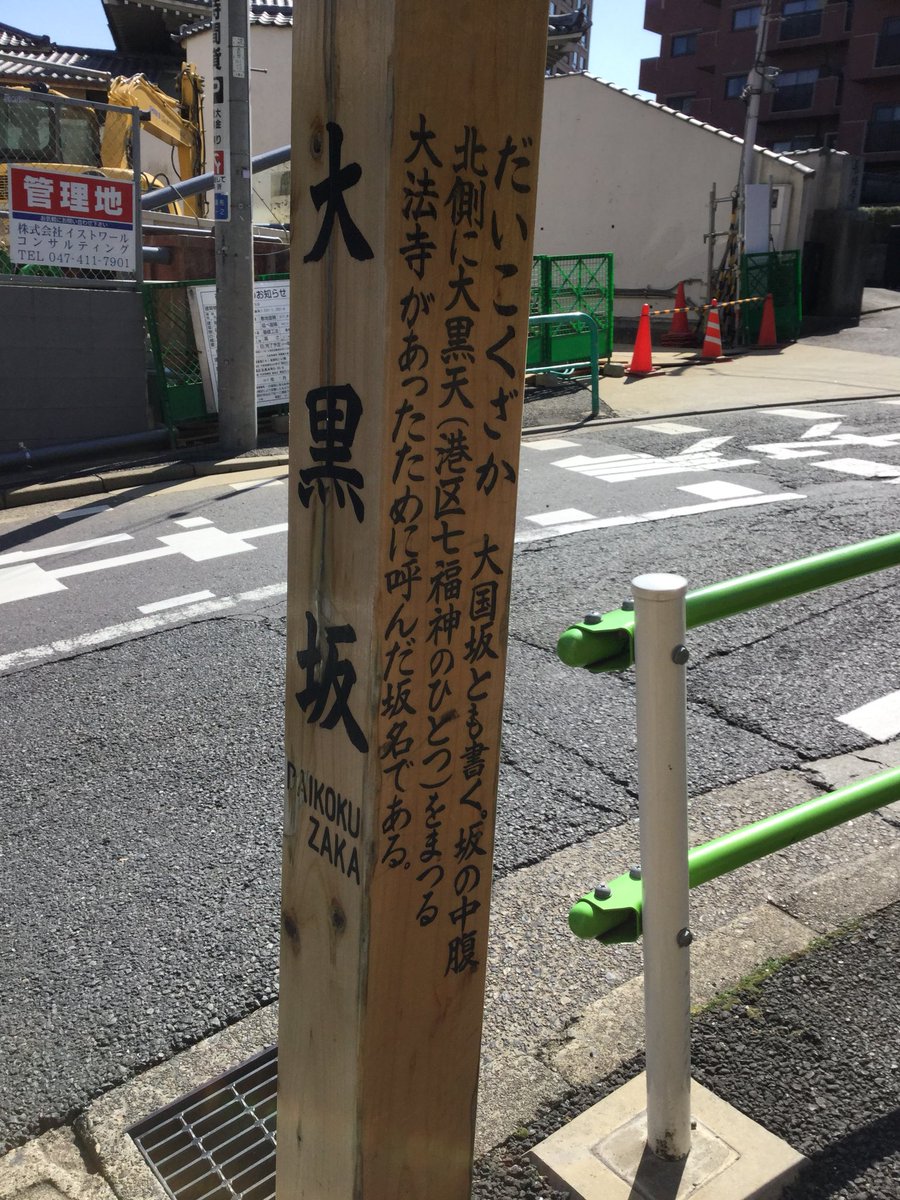 大黒坂
DAIKOKU
ZAKA
だいこくざか　大国坂とも書く。坂の中腹
北側に大黒天(港区七福神のひとつ)をまつる
大法寺があったために呼んだ坂名である。
管理地
株式会社イストワール
コンサルティング
TEL 047-411-7901
お知らせ